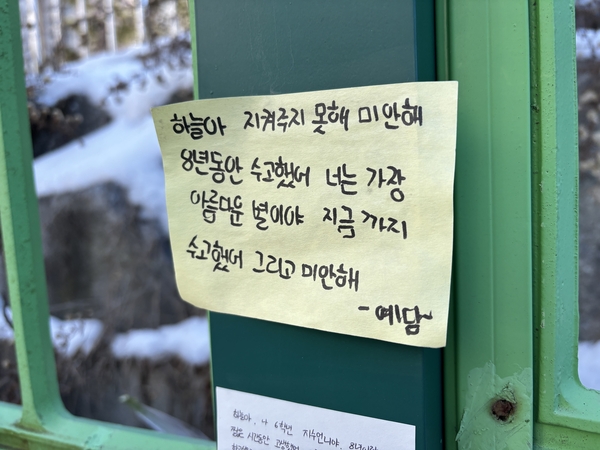 하늘아 지켜주지 못해 미안해
8년동안 수고했어 너는 가장
아름다운 별이야 지금 까지
수고했어 그리고 미안해
-예담-
하늘아, 나 6학년 지수언니야. 8년이란
짧은 시간동안 고생했어